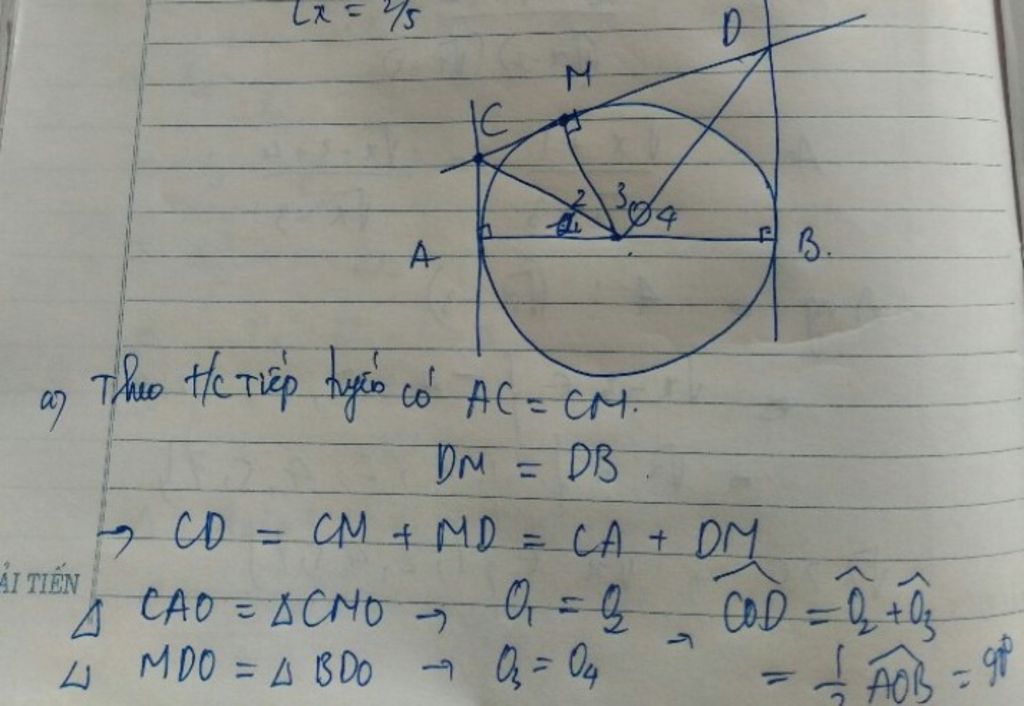 [x = 2/5
D
M
C
2 3 4
A
B.
a) Theo t/c tiếp tuyến có AC = CM.
DM = DB.
→ CD = CM + MD = CA + DM
ẢI TIẾN
Δ CAO = Δ CMO → O₁ = O₂ → COD = O₂ + O₃
Δ MDO = Δ BDO → O₃ = O₄ = 1/2 AOB = 90°